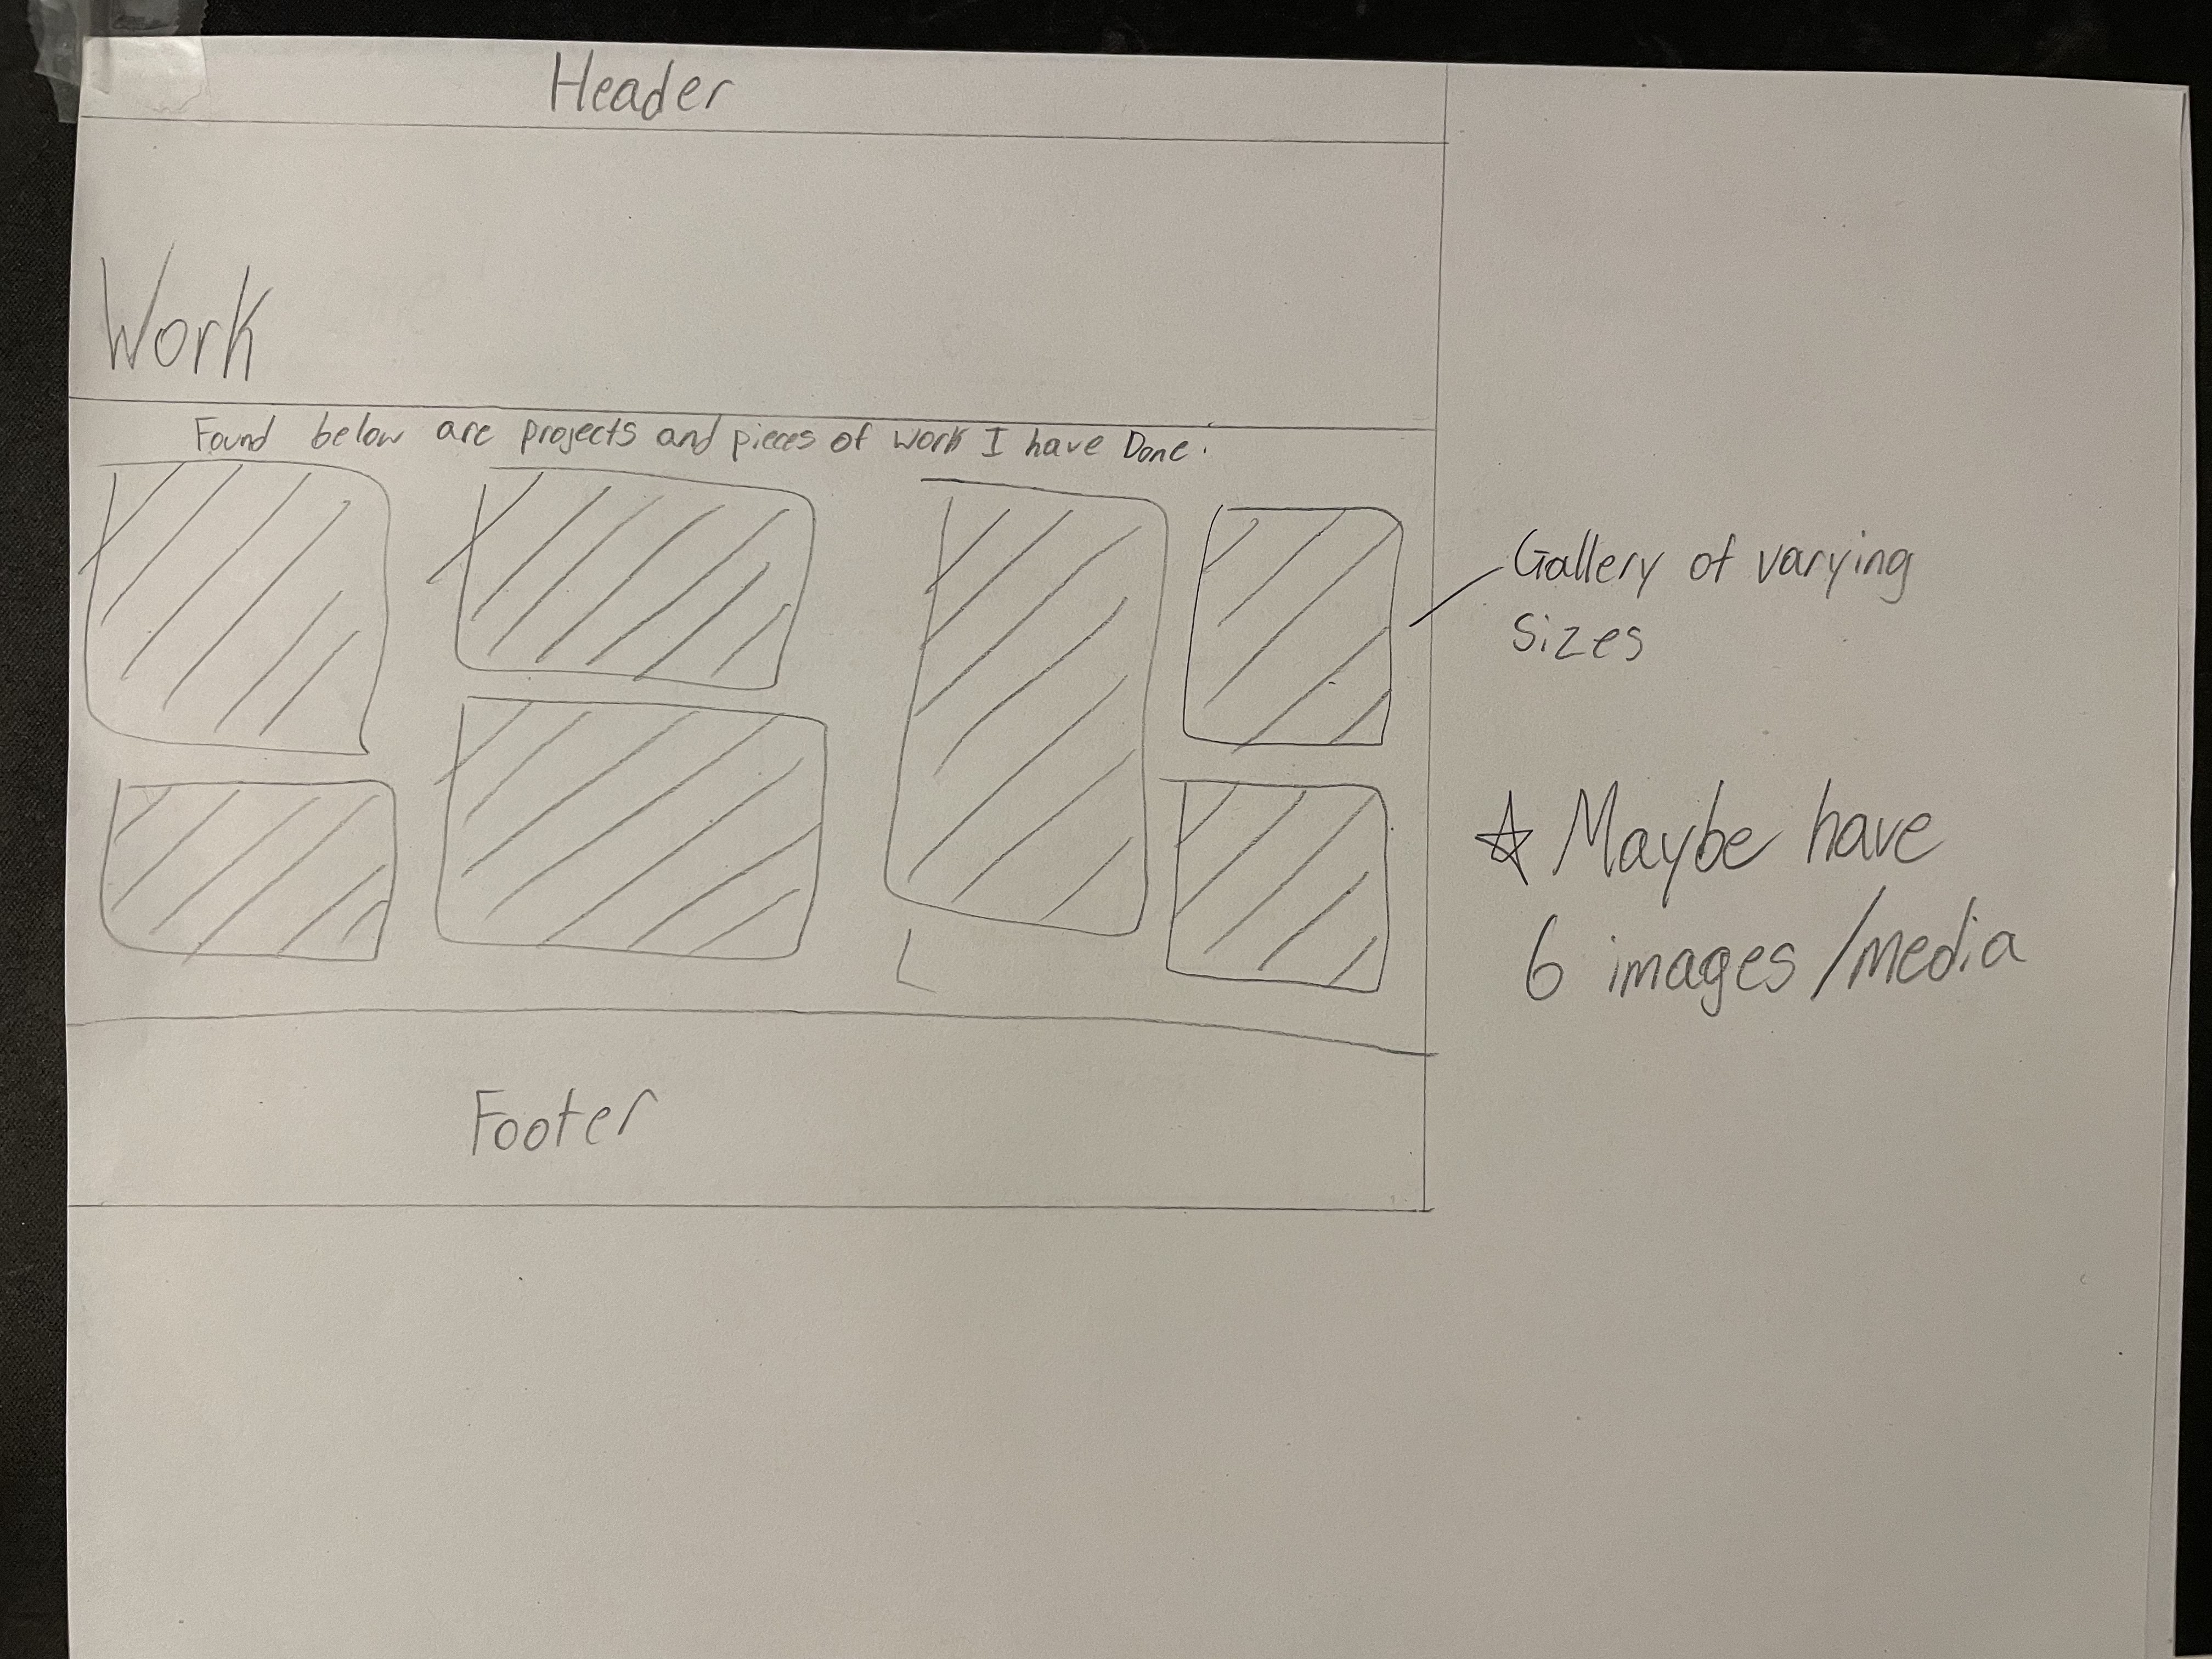 Header
Work
Found below are projects and pieces of work I have Done.
Gallery of varying
sizes
☆ Maybe have
6 images/media
Footer